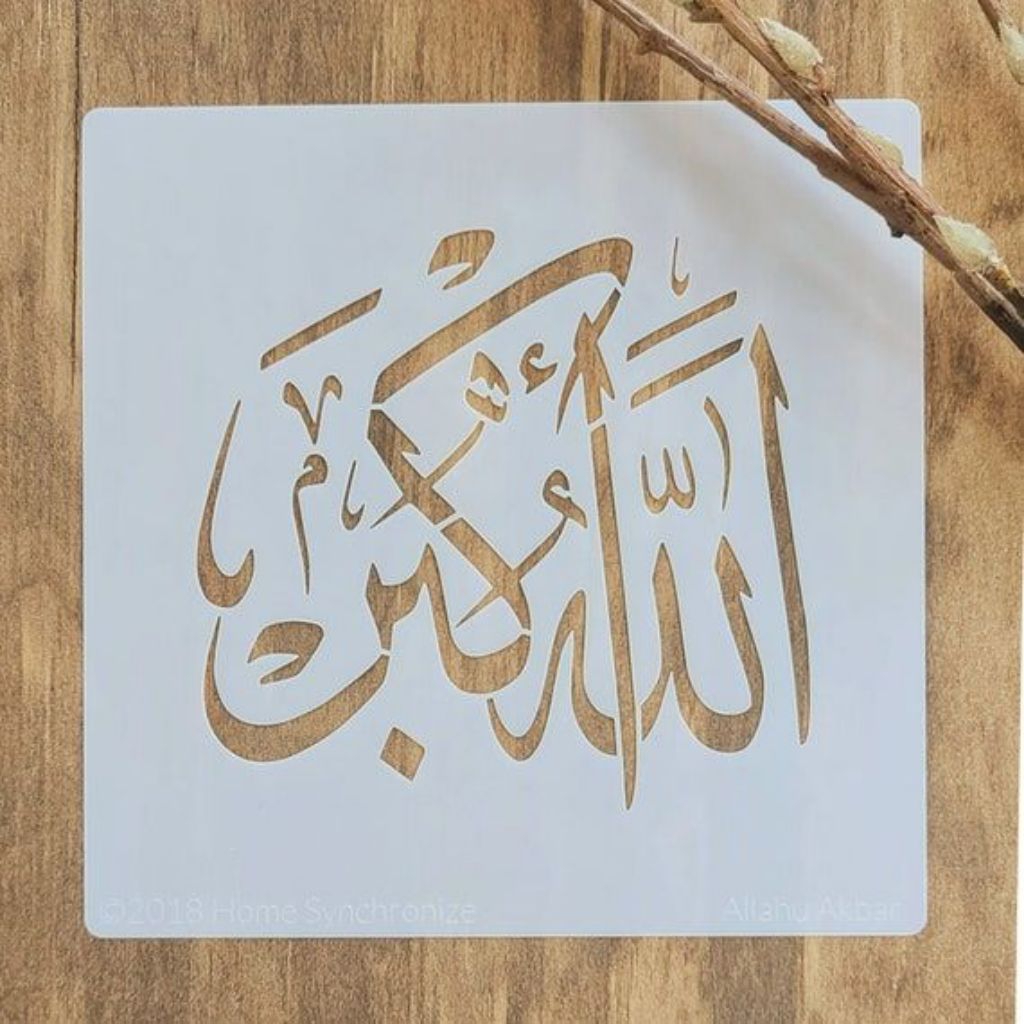 الله أكبر
©2018 Home Synchronize
Allahu Akbar